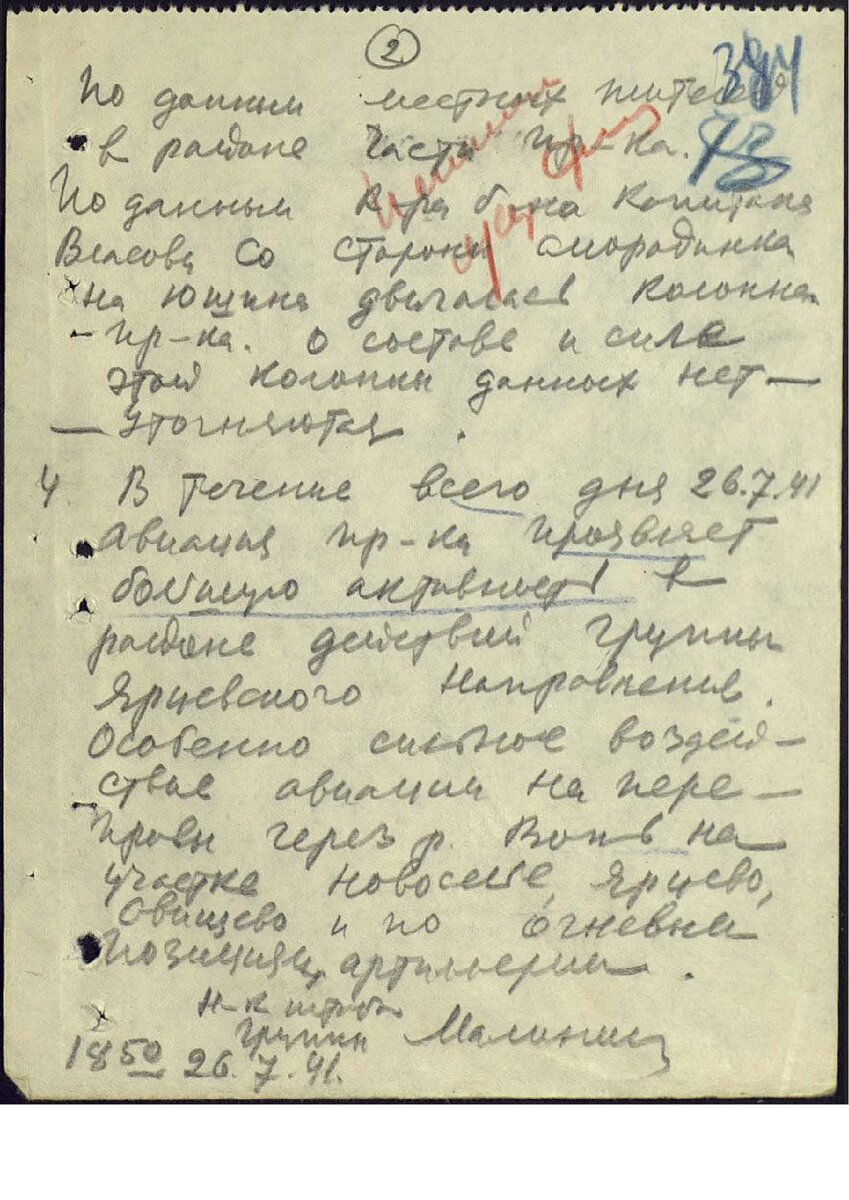 2
384
По данным местных жителей
в районе части пр-ка.
По данным к-ра б-на капитана
Власова со стороны Смородинка
на Ющина двигалась колонна
пр-ка. О составе и силе
этой колонны данных нет —
— уточняются.
4. В течение всего дня 26.7.41
авиация пр-ка проявляет
большую активность в
районе действий группы
Ярцевского направления.
Особенно сильное воздей-
ствие авиации на пере-
правы через р. Вопь на
участке Новоселье, Ярцево,
Овищево и по огневым
позициям артиллерии.
Н-к штаба
группы Малинин
18 50 26.7.41.